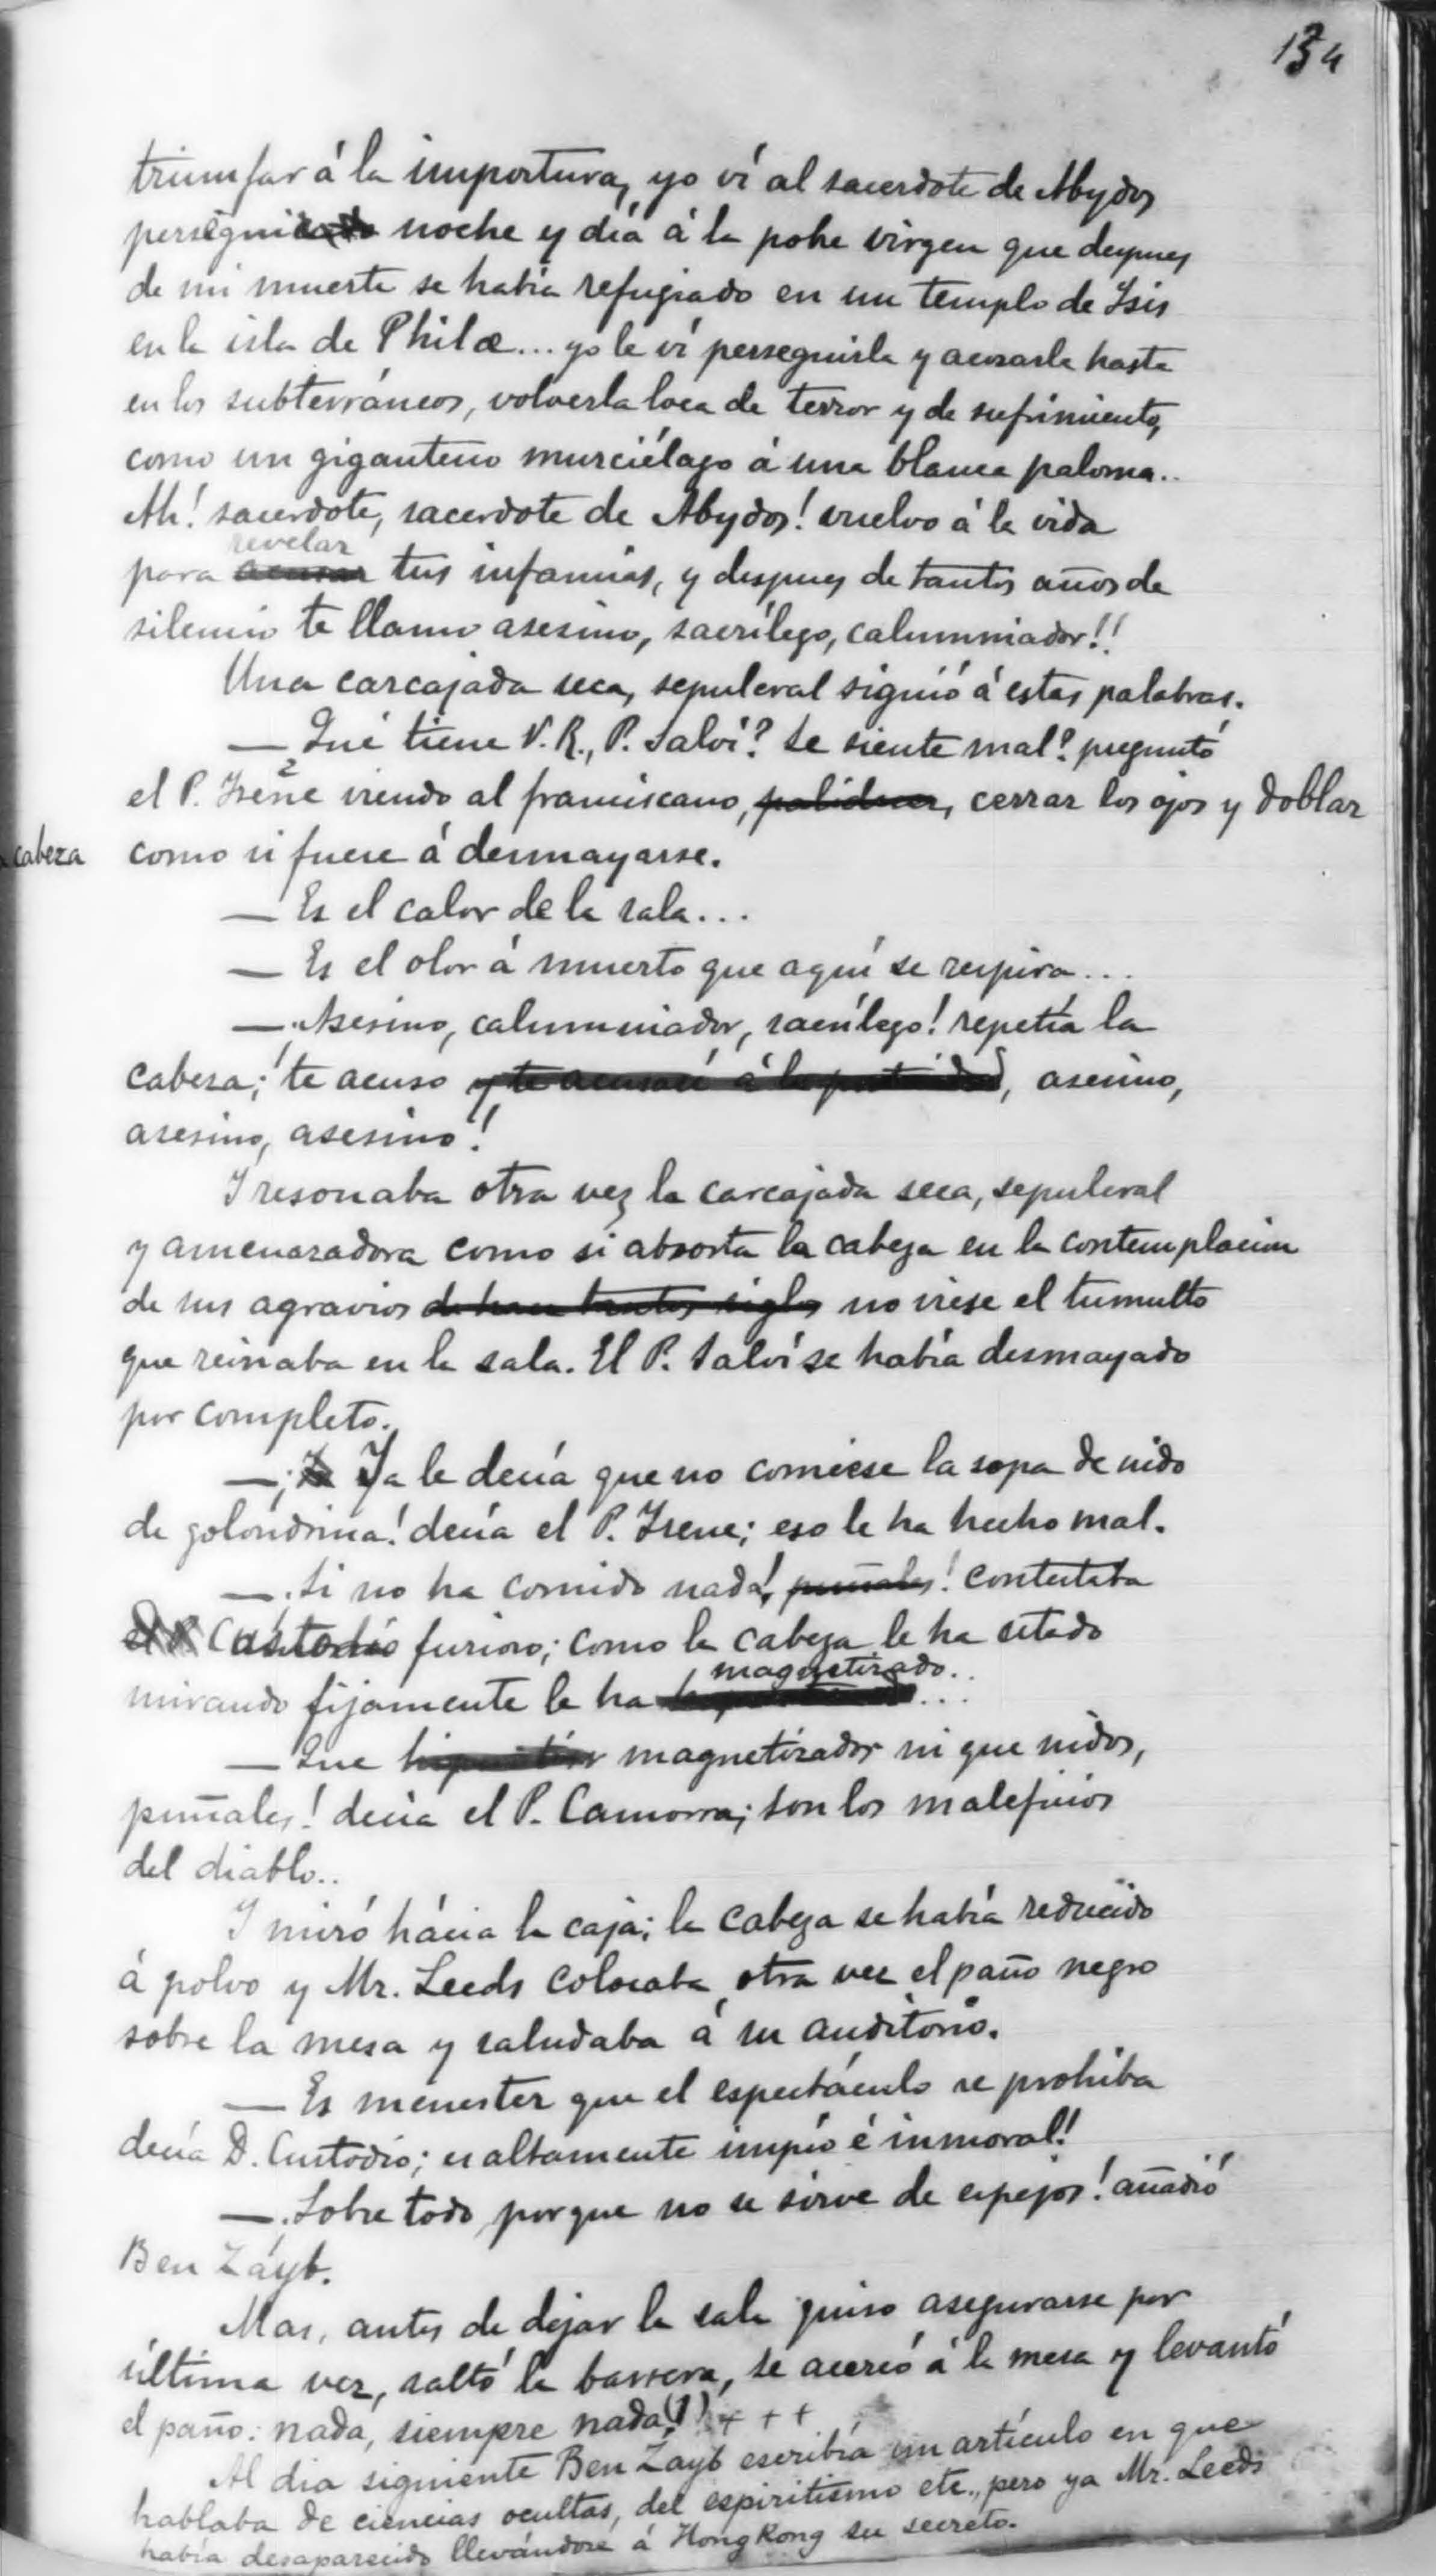 134
triumfar á la impostura, yo ví al sacerdote de Abydos
perseguiendo noche y día á la pobre virgen que despues
de mi muerte se había refugiado en un templo de Isis
en la isla de Philæ... yo le ví perseguirla y acosarla hasta
en los subterráneos, volverla loca de terror y de sufrimiento,
como un gigantesco murciélago á una blanca paloma..
Ah! sacerdote, sacerdote de Abydos! vuelvo á la vida
revelar
para acusar tus infamias, y despues de tantos años de
silencio te llamo asesino, sacrílego, calumniador!!
Una carcajada seca, sepulcral siguió á estas palabras.
— Qué tiene V. R., P. Salví? Se siente mal? preguntó
el P. Irene viendo al franciscano, palidecer, cerrar los ojos y doblar
cabeza como si fuese á desmayarse.
— Es el calor de la sala...
— Es el olor á muerto que aquí se respira...
— ¡Asesino, calumniador, sacrílego! repetía la
cabeza; ¡te acuso y te acusaré á la posteridad, asesino,
asesino, asesino!
Y resonaba otra vez la carcajada seca, sepulcral
y amenazadora como si absorta la cabeza en la contemplacion
de sus agravios de hace tantos siglos no viese el tumulto
que reinaba en la sala. El P. Salví se había desmayado
por completo.
— ¡Ya le decía que no comiese la sopa de nido
de golondrina! decía el P. Irene; eso le ha hecho mal.
— ¡Si no ha comido nada! puñales! contestaba
Custodio furioso; como la cabeza le ha estado
magnetizado..
mirando fijamente le ha ...
— Que magnetizador ni que nidos,
puñales! decía el P. Camorra; son los maleficios
del diablo..
Y miró hácia la caja; la cabeza se había reducido
á polvo y Mr. Leeds colocaba otra vez el paño negro
sobre la mesa y saludaba á su auditorio.
— Es menester que el espectáculo se prohiba
decía D. Custodio; es altamente impío é inmoral!
— ¡Sobre todo, porque no se sirve de espejos! añadió
Ben Záyb.
Mas, antes de dejar la sala quiso asegurarse por
última vez, saltó la barrera, se acercó á la mesa y levantó
el paño: nada, siempre nada(1) + + +
Al dia siguiente Ben Zayb escribía un artículo en que
hablaba de ciencias ocultas, del espiritismo etc., pero ya Mr. Leeds
había desaparecido llevándose á HongKong su secreto.